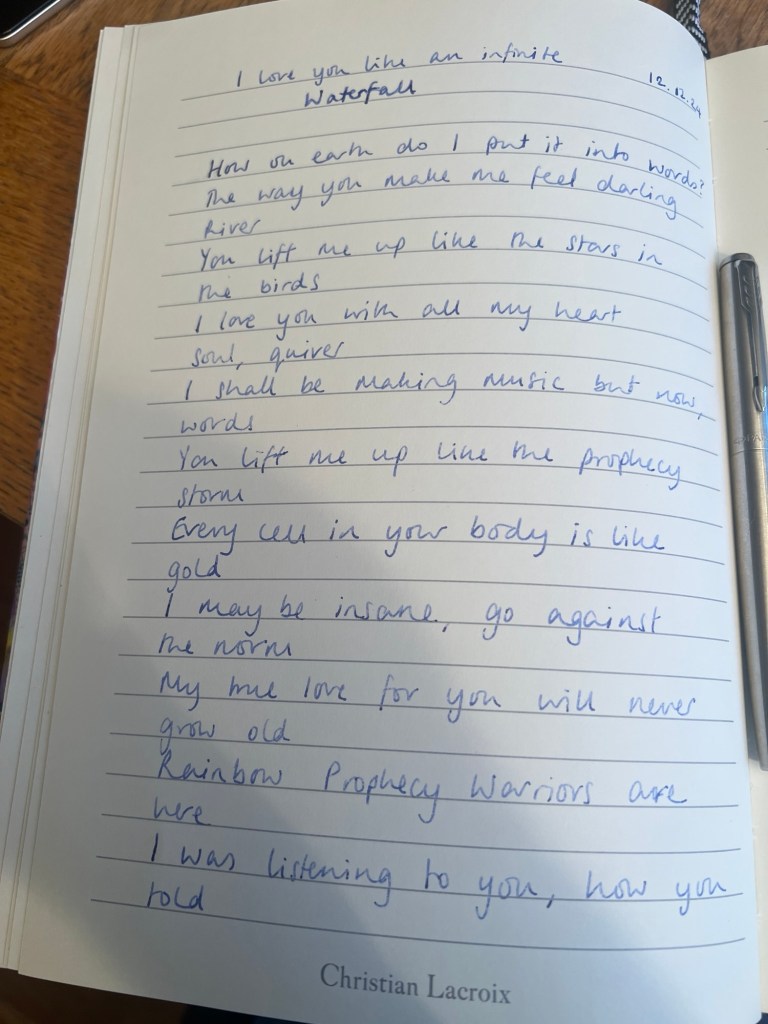 I love you like an infinite
Waterfall
12.12.24
How on earth do I put it into words?
The way you make me feel darling
River
You lift me up like the stars in
the birds
I love you with all my heart
soul, quiver
I shall be making music but now,
words
You lift me up like the prophecy
storm
Every cell in your body is like
gold
I may be insane, go against
the norm
My true love for you will never
grow old
Rainbow Prophecy Warriors are
here
I was listening to you, how you
told
Christian Lacroix